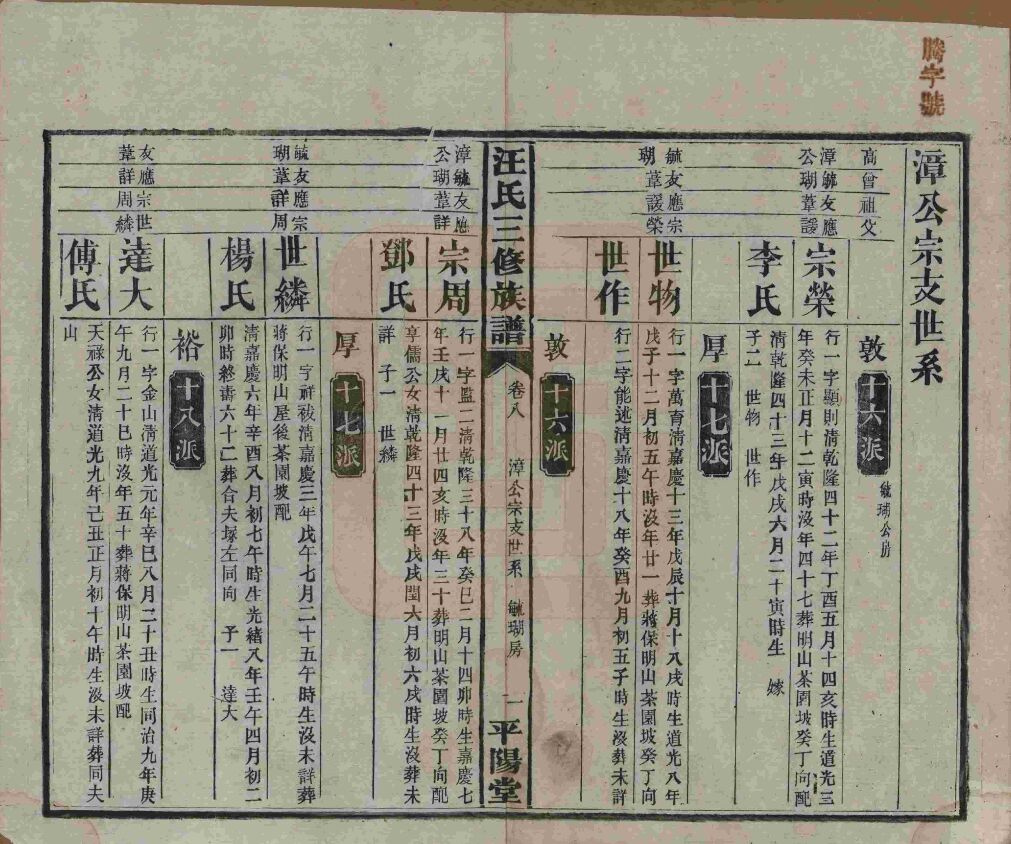 騰字號
漳公宗支世系
高曾祖父
敦
十六派
毓瑚公房
漳毓友應
公瑚葦諼
宗榮
行一字顯則清乾隆四十二年丁酉五月十四亥時生道光三
年癸未正月十二寅時沒年四十七葬明山茶園坡癸丁向配
李氏
清乾隆四十三年戊戌六月二十寅時生 嫁
子二 世物 世作
厚
十七派
毓友應宗
瑚葦諼榮
世物
行一字萬育清嘉慶十三年戊辰十月十八戌時生道光八年
戊子十二月初五午時沒年廿一葬蔣保明山茶園坡癸丁向
世作
行二字能述清嘉慶十八年癸酉九月初五子時生沒葬未詳
敦
十六派
汪氏三修族譜
卷八
漳公宗支世系
毓瑚房
一
平陽堂
漳毓友應
公瑚葦詳
宗周
行一字監二清乾隆三十八年癸巳二月十四卯時生嘉慶七
年壬戌十一月廿四亥時沒年三十葬明山茶園坡癸丁向配
鄧氏
享儒公女清乾隆四十三年戊戌閏六月初六戌時生沒葬未
詳 子一 世繗
厚
十七派
毓友應宗
瑚葦詳周
世繗
行一字祥祓清嘉慶三年戊午七月二十五午時生沒未詳葬
蔣保明山屋後茶園坡配
楊氏
清嘉慶六年辛酉八月初七午時生光緒八年壬午四月初二
卯時終壽六十二葬合夫塚左同向 子一 達大
裕
十八派
友應宗世
葦詳周繗
達大
行一字金山清道光元年辛巳八月二十丑時生同治九年庚
午九月二十巳時沒年五十葬蔣保明山茶園坡配
傅氏
天祿公女清道光九年己丑正月初十午時生沒未詳葬同夫
山